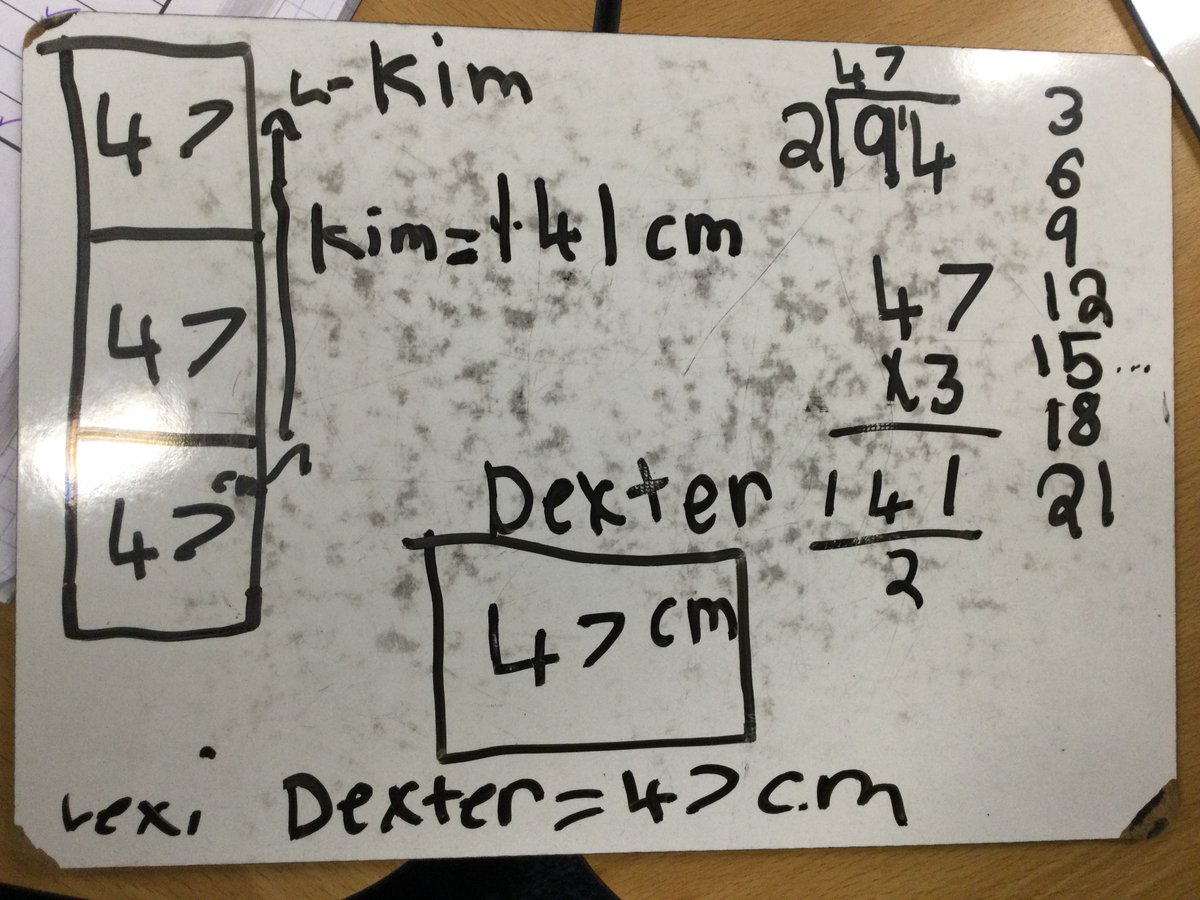 47
47
47
Kim
Kim = 141 cm
47
2 94
1
47
x3
141
2
3
6
9
12
15...
18
21
Dexter
47 cm
Lexi
Dexter = 47 cm